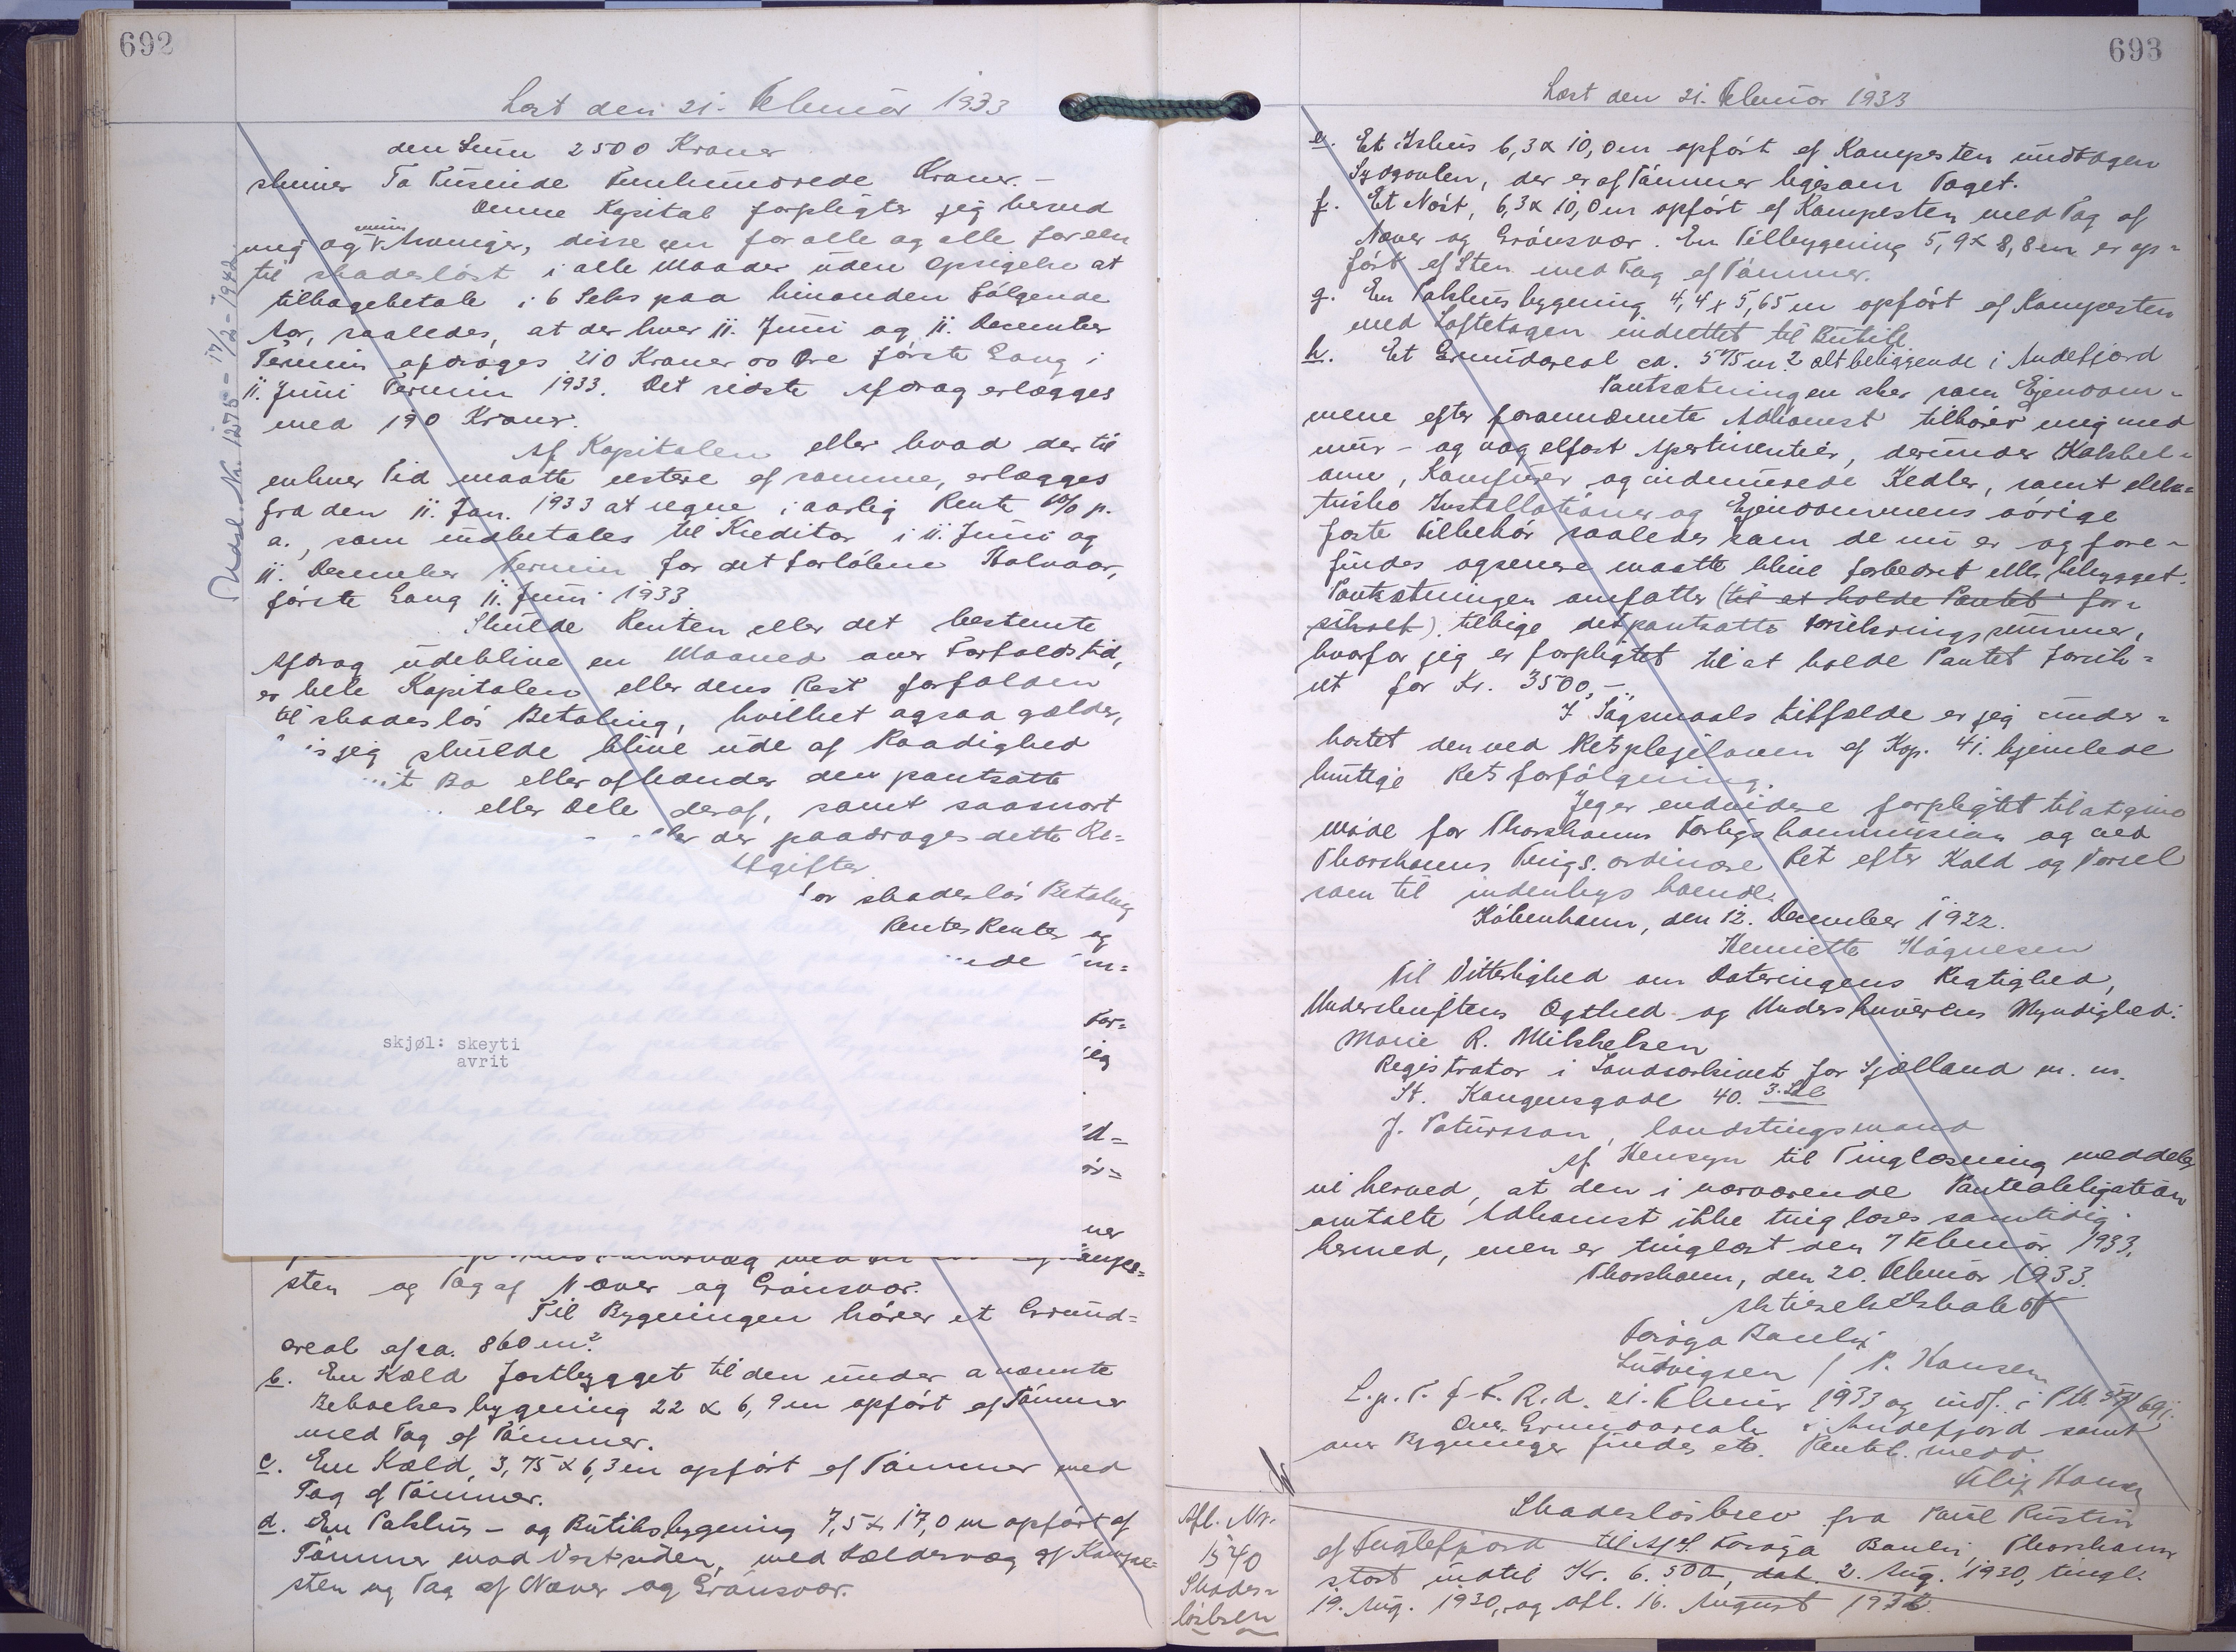 692
Læst den 21. Februar 1933
den Sum 2500 Kroner
skriver To Tusende Femhundrede Kroner.-
Denne Kapital forpligter jeg herved
mig og mine Arvinger, disse een for alle og alle for een
til skadesløst i alle Maader uden Opsigelse at
tilbagebetale i 6 Seks paa hinanden følgende
Aar, saaledes, at der hver 11. Juni og 11. December
Termin afdrages 210 Kroner 00 Øre første Gang i
11. Juni Termin 1933. Det sidste Afdrag erlægges
med 190 Kroner.
Af Kapitalen eller hvad der til
enhver Tid maatte restere af samme, erlægges
fra den 11. Jan. 1933 at regne i aarlig Rente % p.
a., som indbetales til Kreditor i 11. Juni og
11. December Termin for det forløbne Halvaar,
første Gang 11. Juni 1933
Skulde Renten eller det bestemte
Afdrag udeblive en Maaned over Forfaldstid,
er hele Kapitalen eller dens Rest forfalden
til skadesløs Betaling, hvilket ogsaa gælder,
is jeg skulde blive ude af Raadighed
it Bo eller afhænder den pantsatte
eller Dele deraf, samt saasnart
der paadrages dette Re=
Afgifter.
or skadesløs Betaling
Renters Renter og
ede in=
For=
jeg
d=
ør=
ner
skjøl: skeyti
avrit
sten og Tag af Næver og Grønsvær.
Til Bygningen hører et Grund=
areal af ca. 860 m²
b. En Kæld fastbygget til den under a nævnte
Beboelsesbygning 22 x 6,9 m opført af Tømmer
med Tag af Tømmer.
c. En Kæld, 3,75 x 6,3 m opført af Tømmer med
Tag af Tømmer.
d. En Pakhus- og Butiksbygning 7,5 x 17,0 m opført af
Tømmer mod Vestsiden, med Kældervæg af Kampe=
sten og Tag af Næver og Grønsvær.
693
Læst den 21. Februar 1933
e. Et Ishus 6,3 x 10,0 m opført af Kampesten undtagen
Sydgavlen, der er af Tømmer ligesom Taget.
f. Et Nøst, 6,3 x 10,0 m opført af Kampesten med Tag af
Næver og Grønsvær. En Tilbygning 5,9 x 8,8 m er op=
ført af Sten med Tag af Tømmer.
g. En Pakhusbygning 4,4 x 5,65 m opført af Kampesten
med Loftetagen indrettet til Butik
h. Et Grundareal ca. 575 m² alt beliggende i Andefjord
Pantsætningen sker som Ejendom=
mene efter forannævnte Adkomst tilhører mig med
mur- og nagelfast Apertinentier, derunder Kakkel=
ovne, Komfurer og indemurede Kedler, samt elek=
triske Installationer og Ejendommens øvrige
faste Tilbehør saaledes som de nu er og fore=
findes og senere maatte blive forbedret eller bebygget.
Pantsætningen omfatter (til at holde Pantet for=
sikret) tillige det pantsatte Forsikringssummer,
hvorfor jeg er forpligtet til at holde Pantet forsik=
ret for Kr. 3500,-.
I Søgsmaals Tilfælde er jeg under=
kastet den ved Retsplejeloven af Kap. 41. hjemlede
hurtige Retsforfølgning.
Jeg er endvidere forpligtet til at give
Møde for Thorshavns Forligskommission og ved
Thorshavns Tings. ordinære Ret efter Kald og Varsel
som til indenbys boende.
København, den 12. December 1922.
Henriette Høgnesen
Til Vitterlighed om Dateringens Rigtighed,
Underskriftens Ægthed og Underskriverens Myndighed:
Marie R. Mikkelsen
Registrator i Landsarkivet for Sjælland m. m.
St. Kongensgade 40. 3. Sal
J. Patursson, landstingsmand
Af Hensyn til Tinglæsning meddeles
vi herved, at den i nærværende Panteobligation
omtalte Adkomst ikke tinglæses samtidig
hermed, men er tinglæst den 7 Februar 1933.
Thorshavn, den 20. Februar 1933.
Aktieselskabet
Føroya Banki
Ludvigsen / P. Hansen
L.p.T. f. F. R. d. 21. Februar 1933 og indf. i P.M. 691.
Over Grundarealer i Andefjord samt
over Bygninger findes etc. Pantet. medd.
Afl. Nr.
1540
Skades=
løsbrev
Skadesløsbrev fra Poul
af Fuglefjord til A/S Føroya Banki, Thorshavn
stort indtil Kr. 6.500, dat. 2. Aug. 1930, tingl.
19. Aug. 1930, og afl. 16. August 1932.